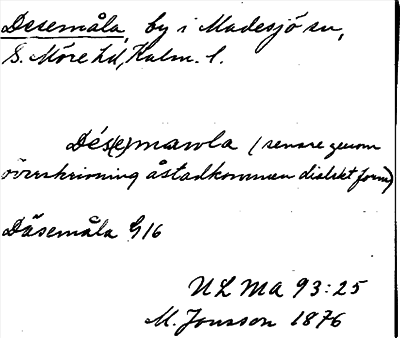 Desemåla, by i Madesjö sn,
S. Möre hd, Kalm. l.
Dés(e)mawla (senare genom
överskrivning åstadkommen dialekt form)
Däsemåla G16
ULMA 93:25
M. Jonsson 1876